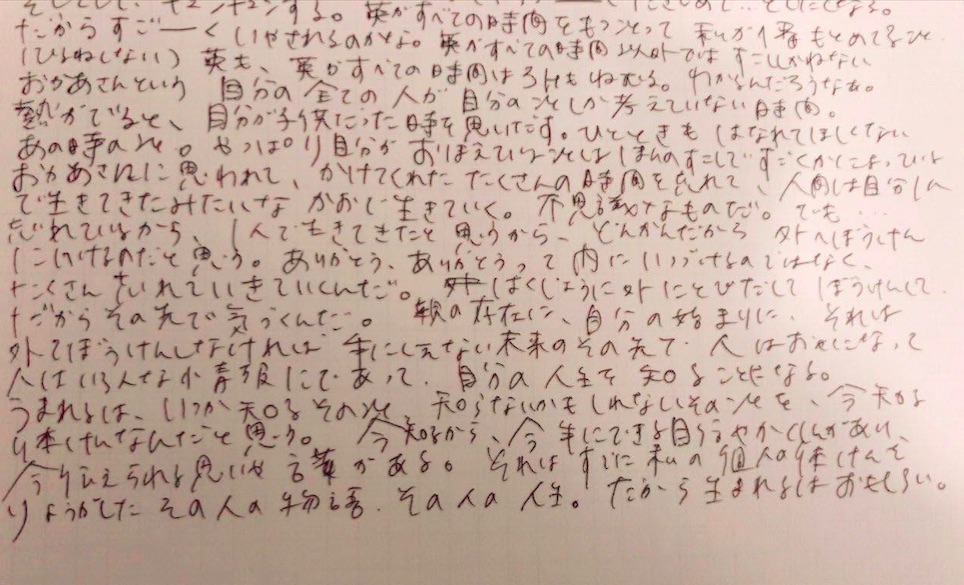 そしてして、キュンキュンする。英がすべての時間をもつことって 私が1番もとめてること
だからすごーく いやされるのかな。英がすべての時間以外ではすこししかねない
(ひるねしない) 英も、英がすべての時間は3Hもねむる。わかるんだろうなあ。
おかあさんという 自分の全ての人が 自分のことしか考えていない時間。
熱がでると、自分が子供だった時を思いだす。ひとときも はなれてほしくない
あの時のこと。やっぱり自分が おぼえていることはほんのすこしで すごく
おかあさんに思われて、かけてくれた たくさんの時間を忘れて、人間は自分1人
で生きてきたみたいな かおして生きていく。不思議なものだ。でも…
忘れているから、1人で生きてきたと思うから、どんかんだから 外へぼうけん
にいけるのだと思う。ありがとう、ありがとうって 内にいつづけるのではなく、
たくさん 忘れていきていくんだ。はくじょうに外にとびだして ぼうけんして
だからその先で気づくんだ。 親の存在に、自分の始まりに、それは
外でぼうけんしなければ 手にしえない未来のその先で 人はおやになって
人はいろんなか にであって、自分の人生を知ることになる。
うまれるは、いつか知るそのこと、知らないかもしれないそのことを、今知る
体けんなんだと思う。 今知るから、今手にできる があり、
今伝えられる思いや言葉がある。それはすでに私の個人の体けんを
りょうがした その人の物語、その人の人生。だから生まれるはおもしろい。